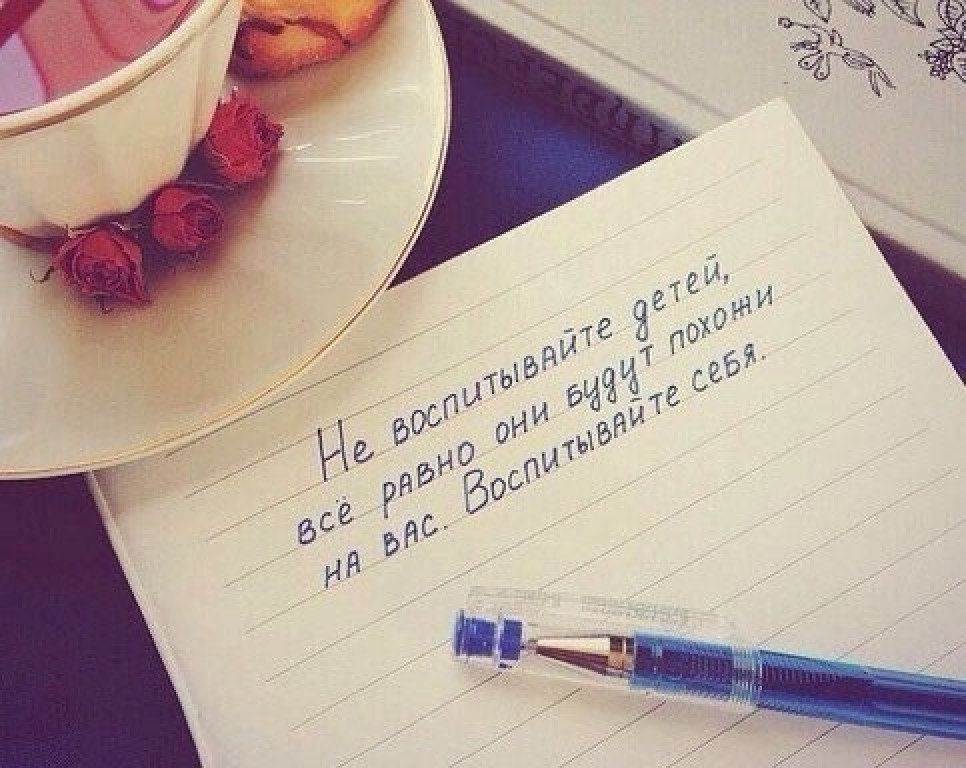 Не воспитывайте детей,
всё равно они будут похожи
на вас. Воспитывайте себя.